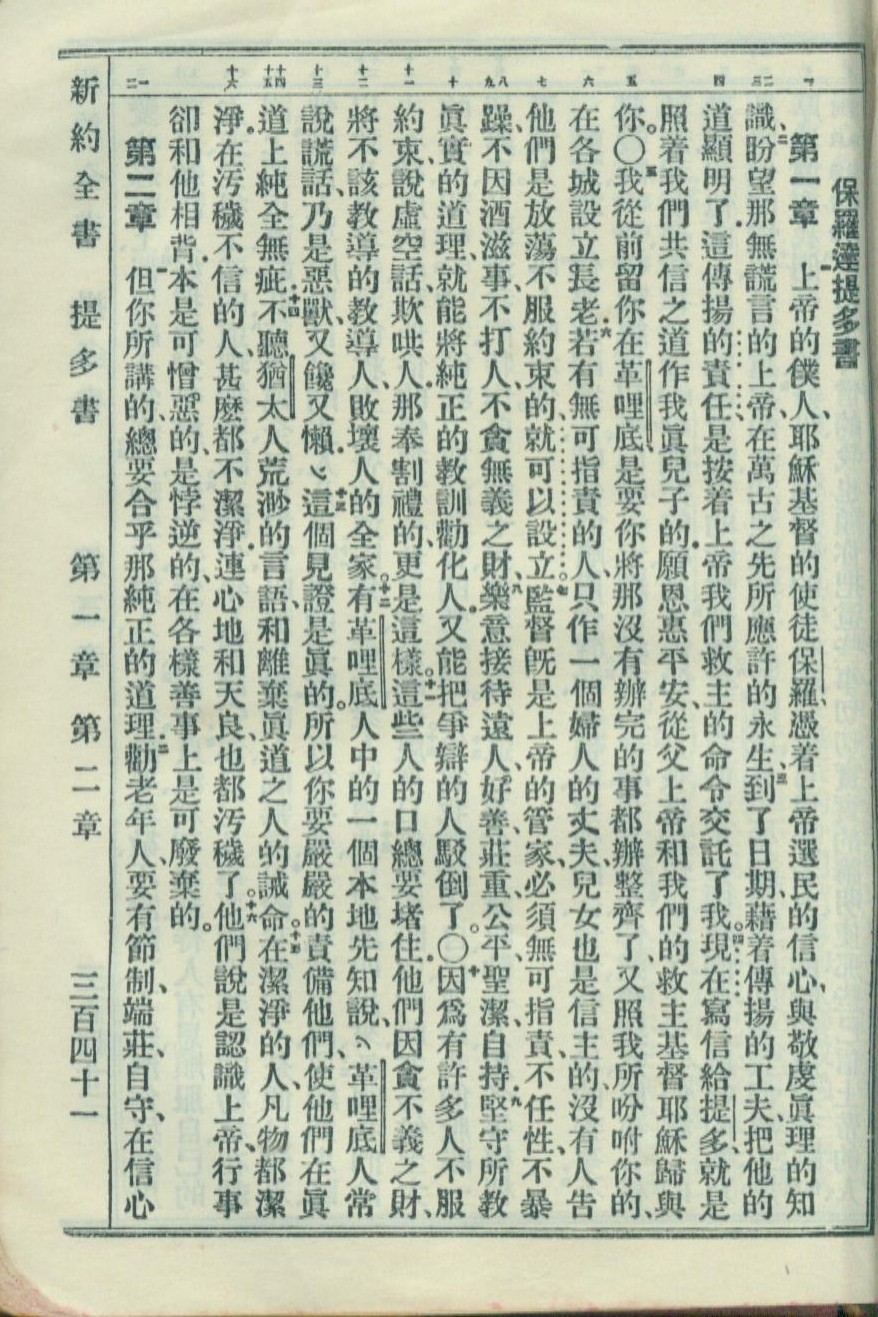 保羅達提多書
第一章 一上帝的僕人、耶穌基督的使徒保羅、憑着上帝選民的信心、與敬虔眞理的知
識、二盼望那無謊言的上帝、在萬古之先所應許的永生、三到了日期、藉着傳揚的工夫、把他的
道顯明了．這傳揚的責任、是按着上帝我們救主的命令交託了我。四現在寫信給提多、就是
照着我們共信之道作我眞兒子的．願恩惠平安、從父上帝和我們的救主基督耶穌、歸與
你。〇五我從前留你在革哩底、是要你將那沒有辦完的事都辦整齊了、又照我所吩咐你的、
在各城設立長老．六若有無可指責的人、只作一個婦人的丈夫、兒女也是信主的、沒有人告
他們是放蕩不服約束的、就可以設立。七監督旣是上帝的管家、必須無可指責、不任性、不暴
躁、不因酒滋事、不打人、不貪無義之財、八樂意接待遠人、好善、莊重、公平、聖潔、自持．九堅守所教
眞實的道理、就能將純正的教訓勸化人．又能把爭辯的人駁倒了。〇十因爲有許多人不服
約束、說虛空話欺哄人．那奉割禮的、更是這樣。十一這些人的口總要堵住．他們因貪不義之財、
將不該教導的教導人、敗壞人的全家。十二有革哩底人中的一個本地先知說、革哩底人常
說謊話、乃是惡獸、又饞又懶．十三這個見證是眞的。所以你要嚴嚴的責備他們、使他們在眞
道上純全無疵．十四不聽猶太人荒渺的言語、和離棄眞道之人的誡命。十五在潔淨的人、凡物都潔
淨．在汚穢不信的人、甚麽都不潔淨．連心地和天良、也都汚穢了。十六他們說是認識上帝、行事
卻和他相背．本是可憎惡的、是悖逆的、在各樣善事上是可廢棄的。
第二章 一但你所講的、總要合乎那純正的道理．二勸老年人、要有節制、端莊、自守、在信心
新約全書 提多書 第一章 第二章 三百四十一